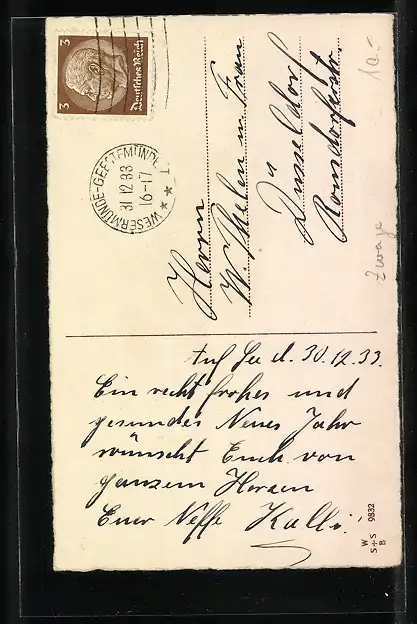 3
3
Deutsches Reich
WESERMÜNDE-GEESTEMÜNDE 1
31.12.33
16-17
Herrn
W. Thelen u. Frau
Düsseldorf
1a.-
Auf See d. 30.12.33.
Ein recht frohes und
gesundes Neues Jahr
wünscht Euch von
ganzem Herzen
Euer Neffe Kalli.
W
S+S
B
9832